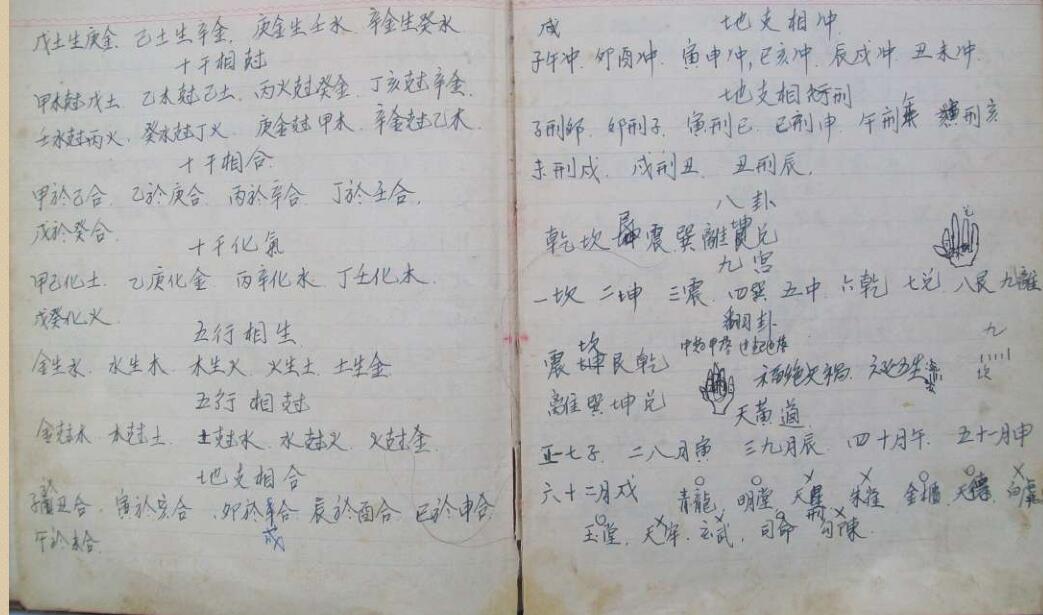 戊土生庚金 乙土生辛金 庚金生壬水 辛金生癸水
十干相尅
甲木尅戊土 乙木尅己土 丙火尅癸金 丁亥尅辛金
壬水尅丙火 癸水尅丁火 庚金尅甲木 辛金尅乙木
十干相合
甲於己合 乙於庚合 丙於辛合 丁於壬合
戊於癸合
十干化氣
甲己化土 乙庚化金 丙辛化水 丁壬化木
戊癸化火
五行相生
金生水 水生木 木生火 火生土 土生金
五行相尅
金尅木 木尅土 土尅水 水尅火 火尅金
地支相合
子於丑合 寅於亥合 卯於合 辰於酉合 巳於申合
戌
午於未合
戌 地支相冲
子午冲 卯酉冲 寅申冲 巳亥冲 辰戌冲 丑未冲
地支相刑
子刑卯 卯刑子 寅刑巳 巳刑申 午刑 刑亥
未刑戌 戌刑丑 丑刑辰
八卦
兑
艮 坤
乾坎 震巽離 兑
九宫
一坎 二坤 三震 四巽 五中 六乾 七兑 八艮 九離
翻卦
九
坎
震坤艮乾
坎
離巽坤兑
天黄道
正七子 二八月寅 三九月辰 四十月午 五十一月申
六十二月戌 青龍 明堂 天 朱雀 金櫃 天德 白虎
刑
玉堂 天牢 玄武 司命 勾陳